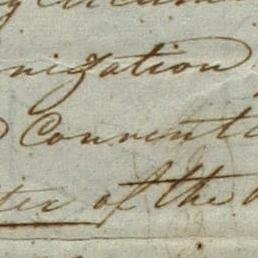 nization
Convent
ter of the